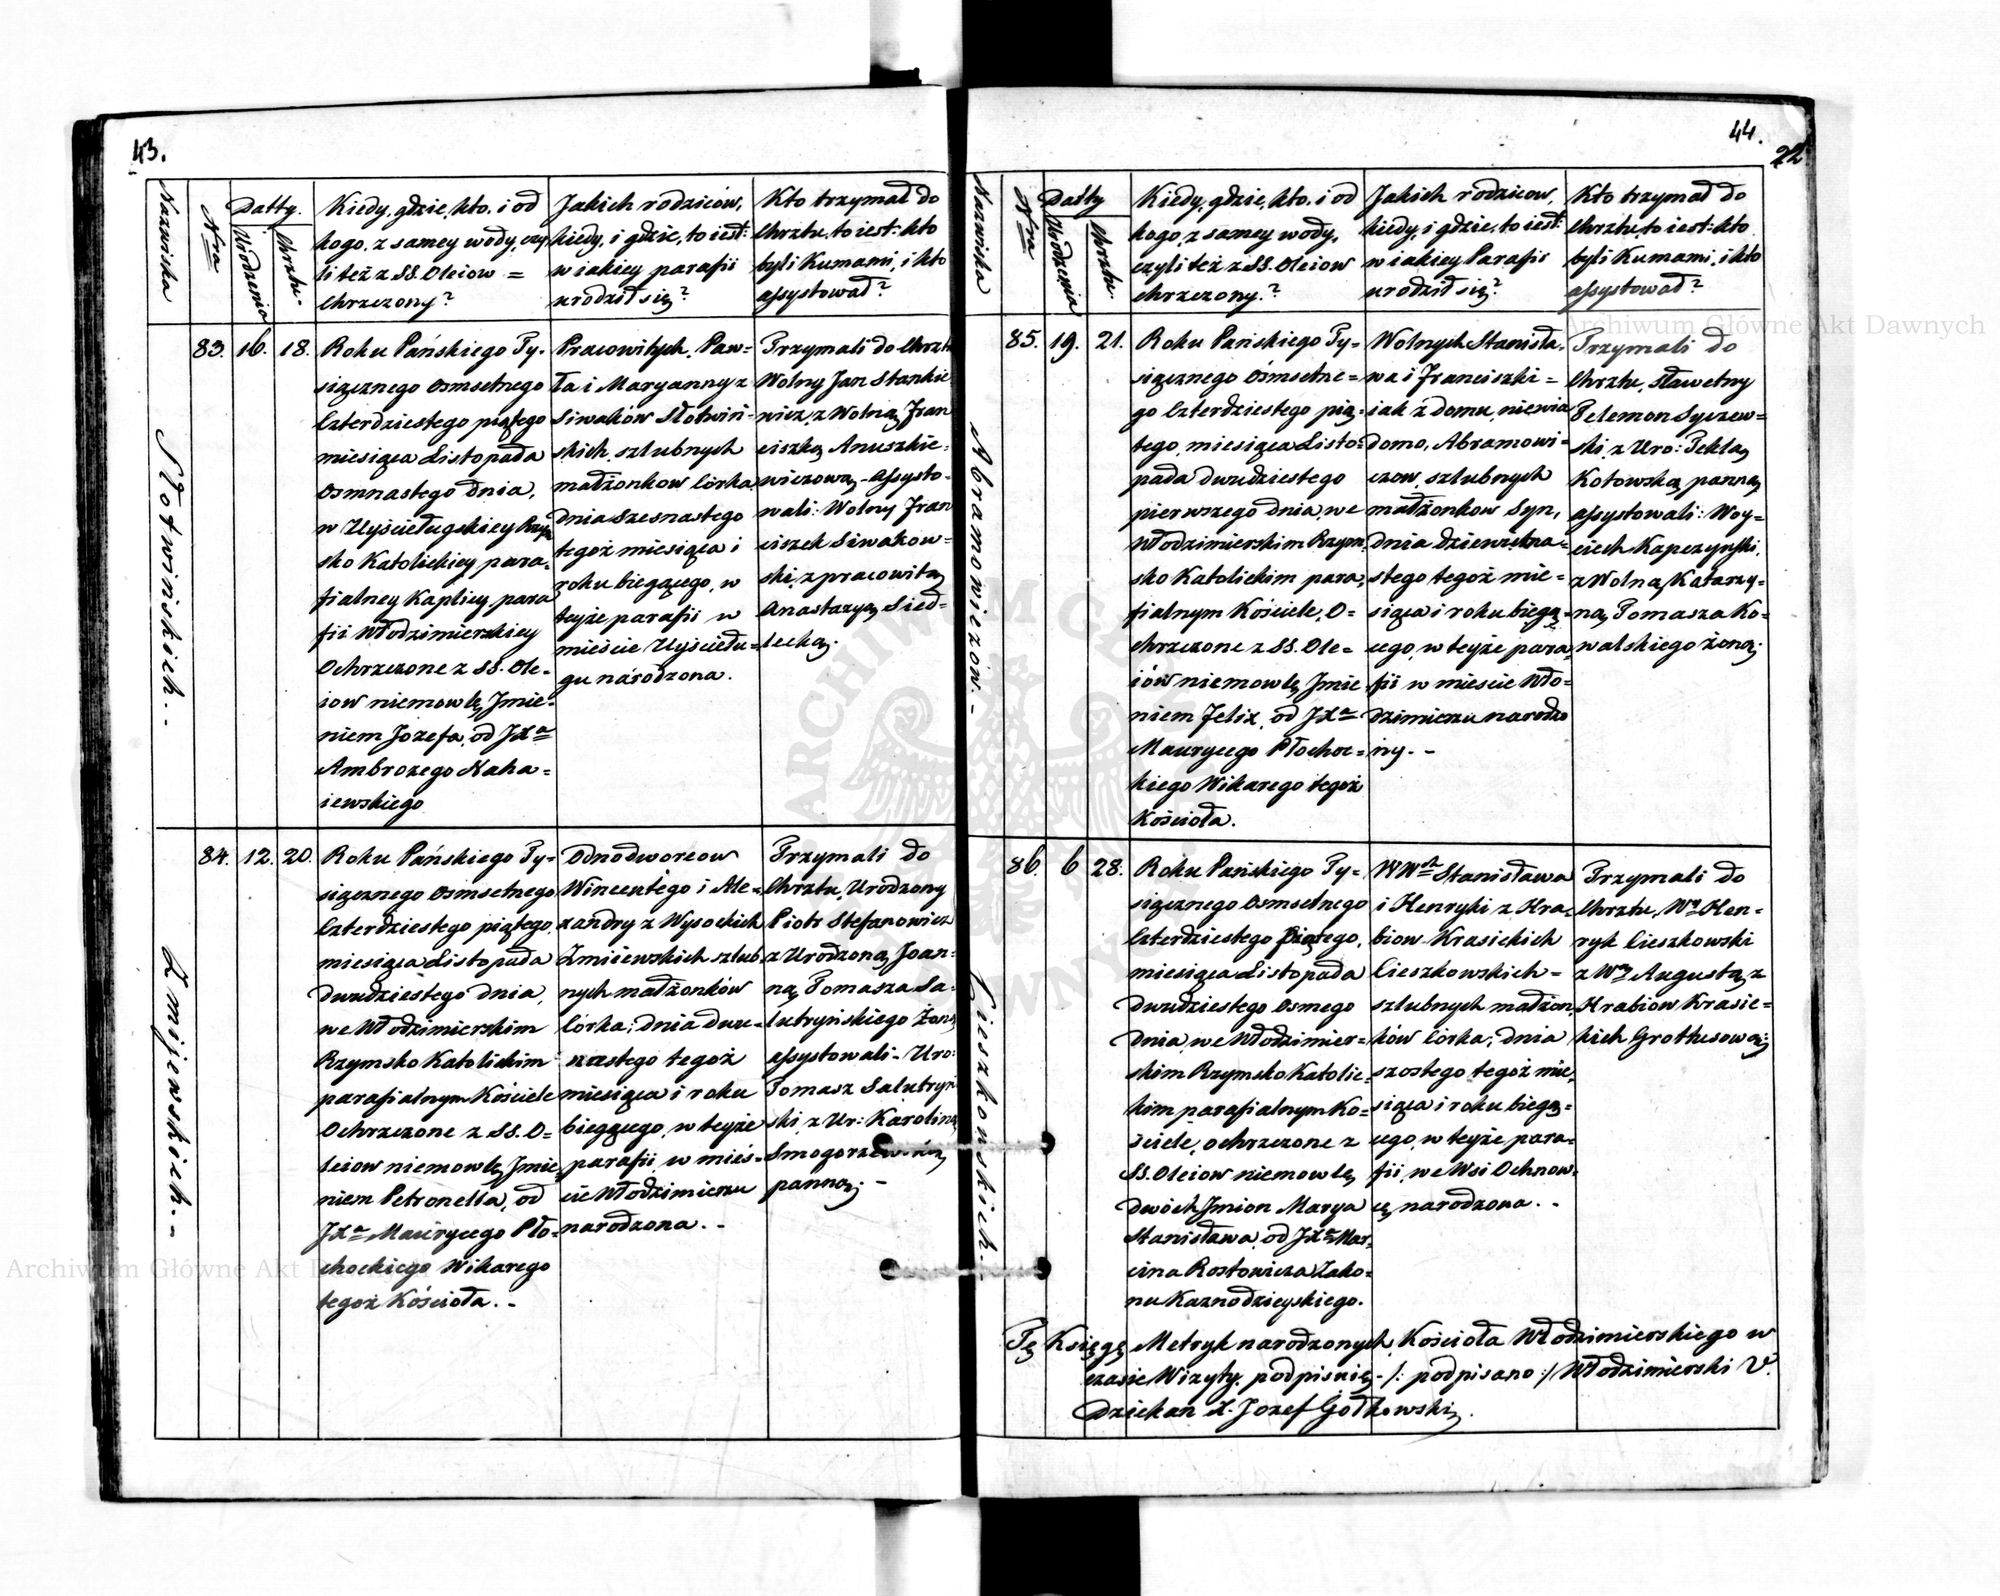 43.
Nazwiska
Nra
Datty.
Urodzenia
Chrztu.
Kiedy, gdzie, kto, i od
kogo, z samey wody, czy
li też z SS. Oleiow =
Chrzczony?
Jakich rodziców,
kiedy, i gdzie, to iest:
w iakiey parafii
urodził się?
Kto trzymał do
Chrztu, to iest: kto
byli Kumami, i kto
assystował?
Słotwińskich. -
83.
16.
18.
Roku Pańskiego Ty-
siącznego Osmsetnego
Czterdziestego piątego
miesiąca Listopada
Osmnastego dnia,
w Uyściługskiey Rzym
sko Katolickiey para-
fialney Kaplicy para
fii Włodzimierskiey
Ochrzczone z SS. Ole-
iow niemowlę Jmie-
niem Jozefa, od JXa
Ambrożego Naha=
iewskiego
Pracowitych Paw=
ła i Maryanny z
Siwaków Słotwiń-
skich, szlubnych
małżonkow Córka
dnia Szesnastego
tegoż miesiąca i
roku bieżącego, w
teyże parafii w
mieście Uyściłu=
gu narodzona.
Trzymali do Chrztu
Wolny Jan Stankie
wicz, z Wolną Fran
ciszką Anuszkie-
wiczową - Assysto-
wali: Wolny Fran
ciszek Siwakow-
ski, z pracowitą
Anastazyą Sied-
lecką.
Żmijewskich. -
84.
12.
20.
Roku Pańskiego Ty-
siącznego Osmsetnego
Czterdziestego piątego
miesiąca Listopada
dwudziestego dnia,
we Włodzimierskim
Rzymsko Katolickim
parafialnym Kościele
Ochrzczone z SS. O=
leiow niemowlę Jmie
niem Petronella, od
JXa Maurycego Pło-
chockiego Wikarego
tegoż Kościoła. -
Odnodworcow
Wincentego i Ale-
xandry z Wysockich
Żmiiewskich szlub
nych małżonków
Córka; dnia dwu-
nastego tegoż
miesiąca i roku
bieżącego, w teyże
parafii, w mieś-
cie Włodzimierzu
narodzona. -
Trzymali do
Chrztu, Urodzony
Piotr Stefanowicz
z Urodzoną Joan-
ną Tomasza Sa-
lutryńskiego Żoną
assystowali - Uro:
Tomasz Salutryń
ski, z Ur: Karoliną
Smogorzewską
panną. -
44.
22
Nazwiska
Nra
Datty
Urodzenia
Chrztu.
Kiedy, gdzie, kto, i od
kogo, z samey wody,
czyli też z SS. Oleiow
Chrzczony.?
Jakich rodzicow,
kiedy, i gdzie, to iest:
w iakiey Parafii
urodził się?
Kto trzymał do
Chrztu, to iest: kto
byli Kumami, i kto
assystował?
Abramowiczów. -
85.
19.
21.
Roku Pańskiego Ty-
siącznego Ośmsetne=
go Czterdziestego pią-
tego, miesiąca Listo-
pada dwudziestego
pierwszego dnia, we
Włodzimierskim Rzym
sko Katolickim para-
fialnym Kościele, O=
chrzczone z SS. Ole=
iów niemowlę Jmie
niem Felix, od JXa
Maurycego Płochoc=
kiego Wikarego tegoż
Kościoła.
Wolnych Stanisła-
wa i Franciszki =
iak z domu, niewia
domo, Abramowi=
czow, szlubnych
małżonkow Syn,
dnia dziewiętna=
stego tegoż mie=
siąca i roku bieżą=
cego, w teyże para
fii w mieście Wło=
dzimierzu narodzo
ny. -
Trzymali do
Chrztu, Sławetny
Felemon Syczew=
ski, z Uro: Teklą
Kotowską panną
assystowali: Woy=
ciech Kapczyński
z Wolną Katarzy=
ną Tomasza Ko=
walskiego żoną.
Cieszkowskich. -
86.
6
28.
Roku Pańskiego Ty=
siącznego Osmsetnego
Czterdziestego Piątego,
miesiąca Listopada
dwudziestego Osmego
dnia, we Włodzimier=
skim Rzymsko Katolic=
kim parafialnym Ko=
ściele, ochrzczone z
SS. Oleiow niemowlę
dwóch Jmion Marya
Stanisława, od JXa Mar-
cina Rostowicza Zako=
nu Kaznodzieyskiego.
WWch Stanisława
i Henryki z Hra-
biow Krasickich
Cieszkowskich =
szlubnych małżon,
ków Córka; dnia
szostego tegoż mie,
siąca i roku bieżą=
cego, w teyże para-
fii, we Wsi Ochnow-
cę narodzona. -
Trzymali do
Chrztu, Wy Hen=
ryk Cieszkowski
z Wą Augustą z
Hrabiow Krasic=
kich Grothusową.
Tę Księgę Metryk narodzonych Kościoła Włodzimierskiego w
czasie Wizyty podpisuię - /: podpisano :/ Włodzimierski V.
Dziekan X. Jozef Gołkowski.
Archiwum Główne Akt Dawnych
Archiwum Główne Akt Dawnych